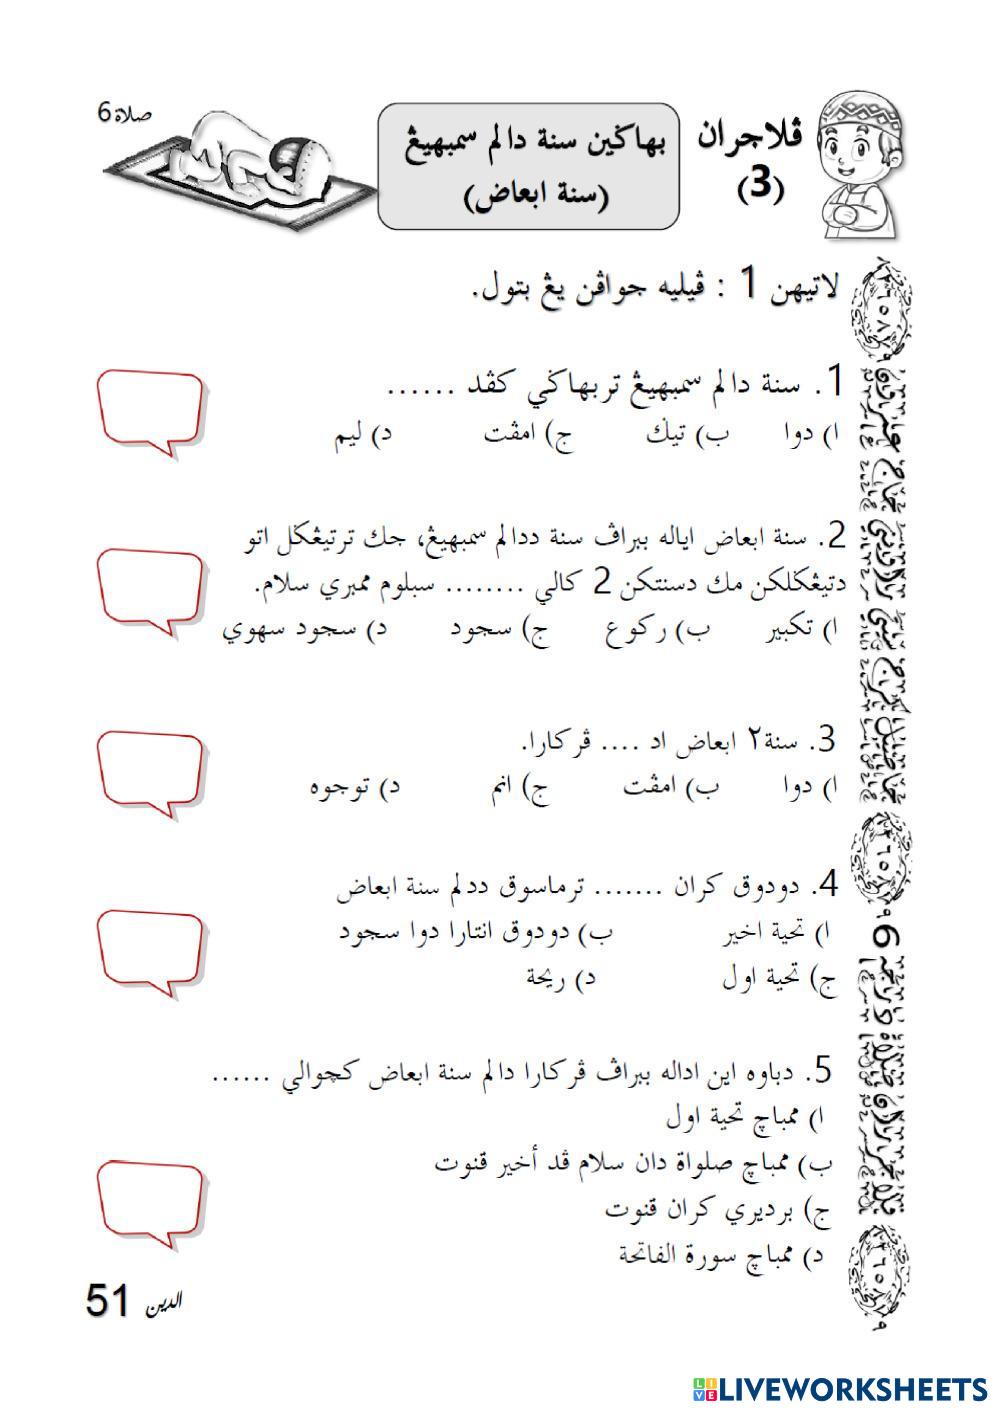 صلاة 6
ڤلاجران
(3)
بهاڬين سنة دالم سمبهيڠ
(سنة ابعاض)
لاتيهن 1 : ڤيليه جواڤن يڠ بتول.
1. سنة دالم سمبهيڠ تربهاڬي كڤد ......
ا) دوا ب) تيݢ ج) امڤت د) ليم
2. سنة ابعاض اياله ببراڤ سنة ددالم سمبهيڠ، جك ترتيڠݢل اتو
دتيڠݢلكن مك دسنتكن 2 كالي ........ سبلوم ممبري سلام.
ا) تكبير ب) ركوع ج) سجود د) سجود سهوي
3. سنة٢ ابعاض اد .... ڤركارا.
ا) دوا ب) امڤت ج) انم د) توجوه
4. دودوق كران ....... ترماسوق ددلم سنة ابعاض
ا) تحية اخير ب) دودوق انتارا دوا سجود
ج) تحية اول د) ريحة
5. دباوه اين اداله ببراڤ ڤركارا دالم سنة ابعاض كچوالي ......
ا) ممباچ تحية اول
ب) ممباچ صلواة دان سلام ڤد أخير قنوت
ج) برديري كران قنوت
د) ممباچ سورة الفاتحة
الدين 51
LIVEWORKSHEETS